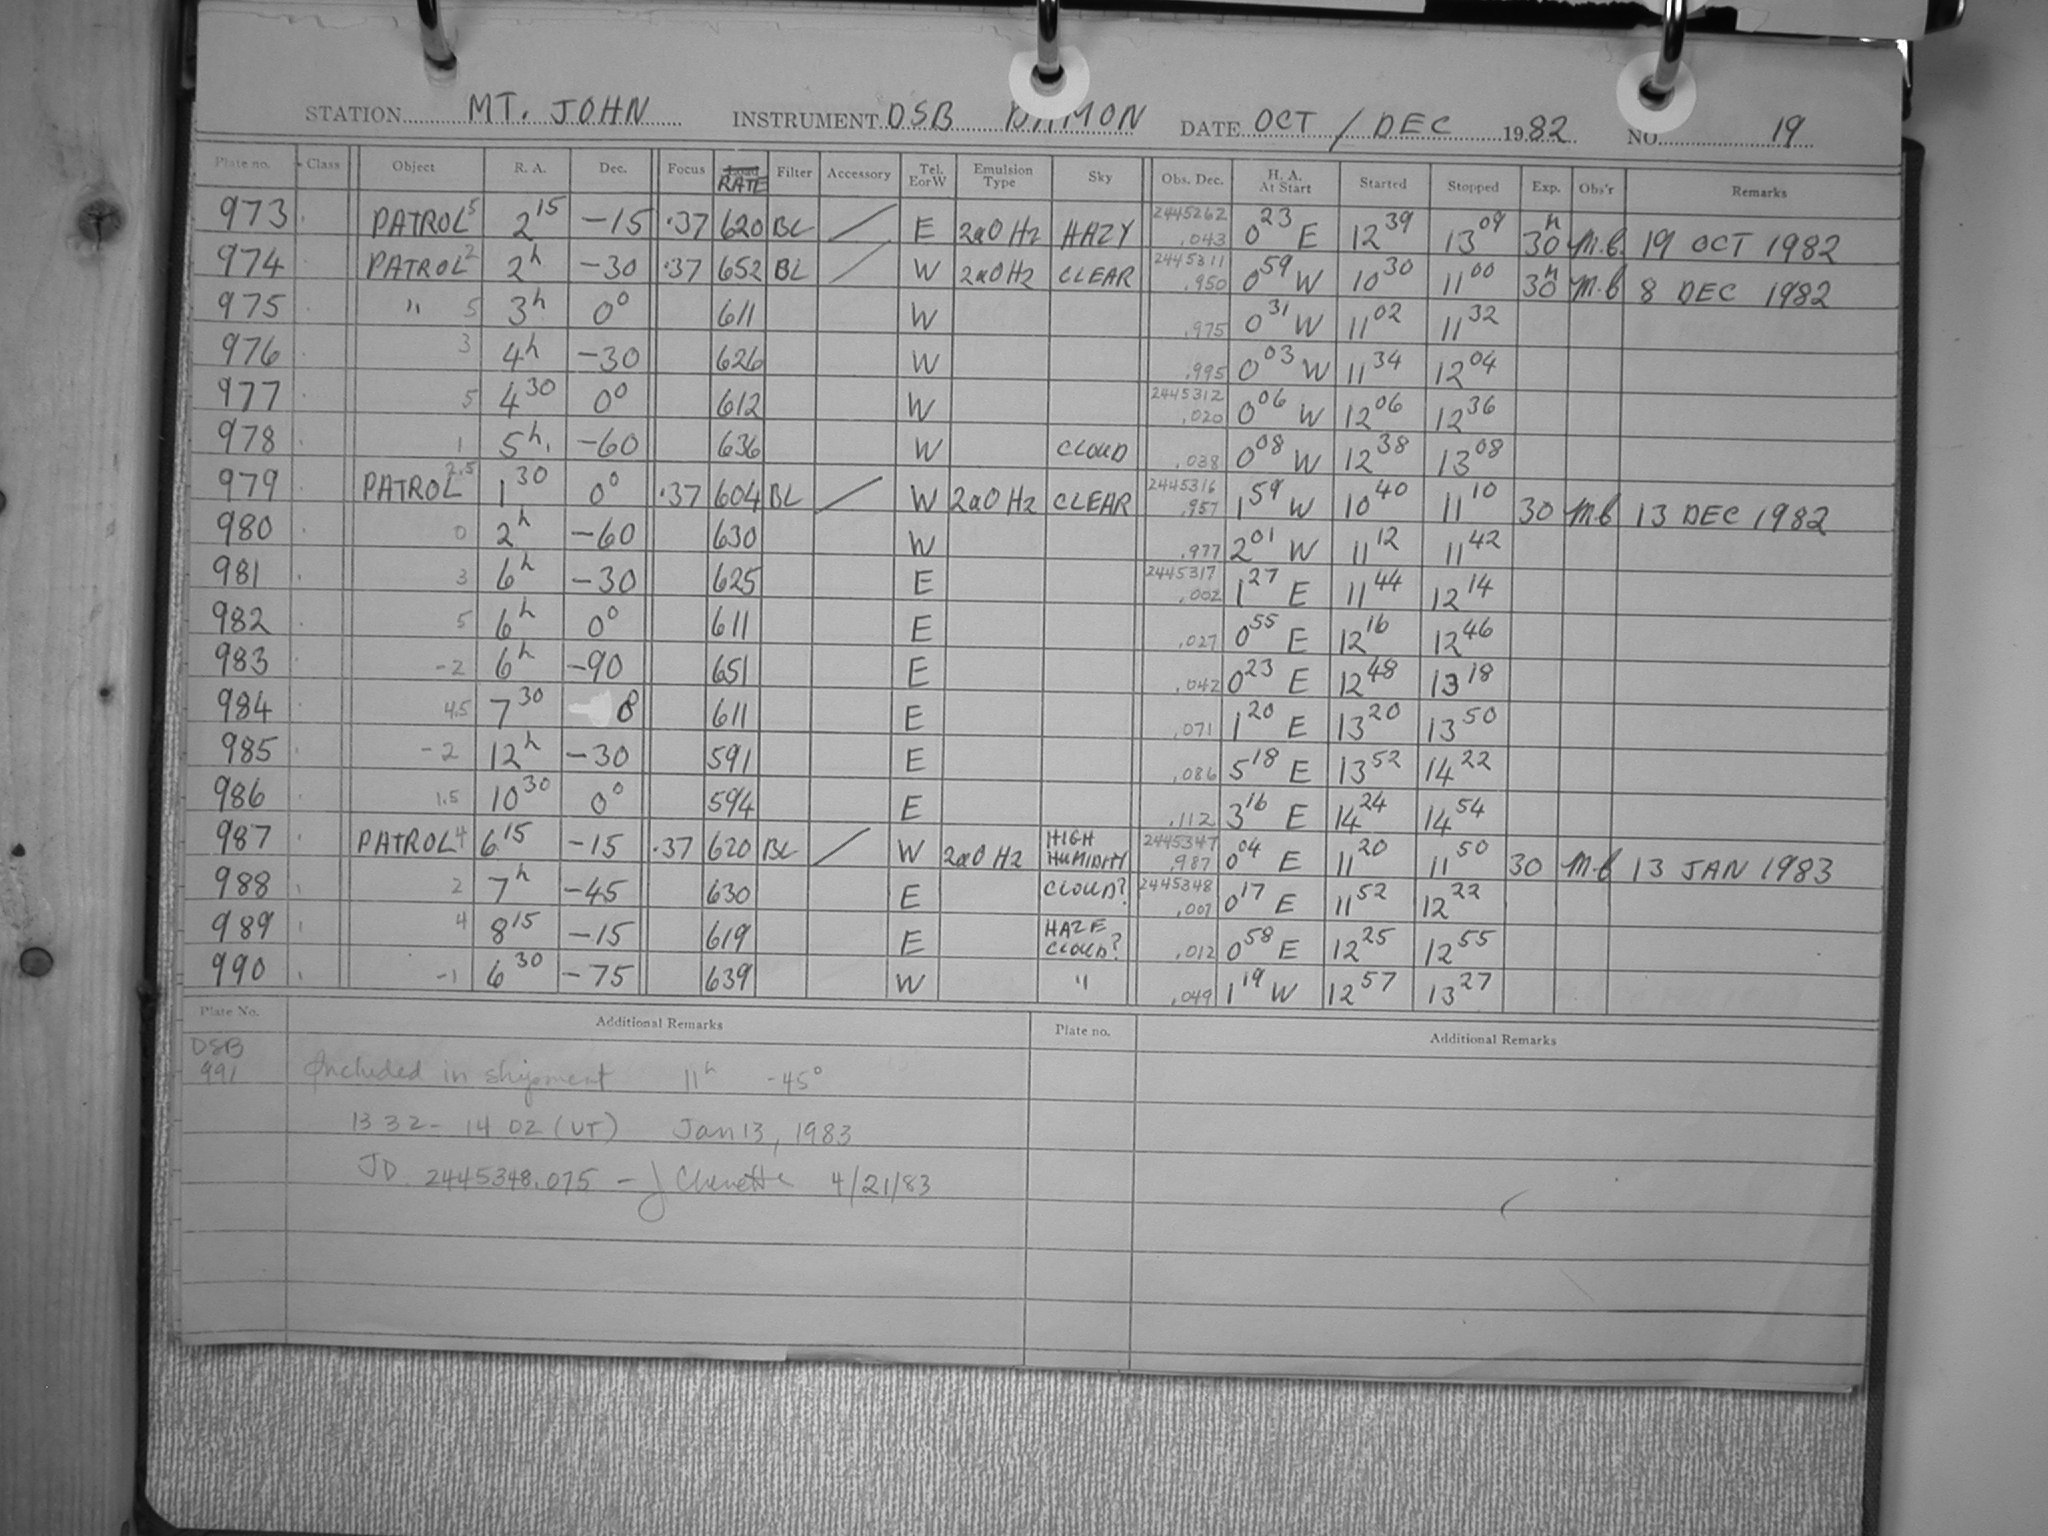 STATION MT. JOHN INSTRUMENT DSB DAMON DATE OCT / DEC 1982 NO. 19
Plate no. Class Object R. A. Dec. Focus RATE Filter Accessory Tel. E or W Emulsion Type Sky Obs. Dec. H. A. At Start Started Stopped Exp. Obs'r Remarks
973 PATROL 5 2 15 -15 .37 620 BL / E 2a0 Hz HAZY 2445262 .043 0 23 E 12 39 13 09 30 m M.B 19 OCT 1982
974 PATROL 2 2h -30 .37 652 BL / W 2a0 Hz CLEAR 2445311 .950 0 59 W 10 30 11 00 30 m M.B 8 DEC 1982
975 " 5 3h 0° 611 W .975 0 31 W 11 02 11 32
976 3 4h -30 626 W .995 0 03 W 11 34 12 04
977 5 4 30 0° 612 W 2445312 .020 0 06 W 12 06 12 36
978 1 5h. -60 636 W CLOUD .038 0 08 W 12 38 13 08
979 PATROL 2.5 1 30 0° .37 604 BL / W 2a0 Hz CLEAR 2445316 .957 1 59 W 10 40 11 10 30 M.B 13 DEC 1982
980 0 2h -60 630 W .977 2 01 W 11 12 11 42
981 3 6h -30 625 E 2445317 .002 1 27 E 11 44 12 14
982 5 6h 0° 611 E .027 0 55 E 12 16 12 46
983 -2 6h -90 651 E .042 0 23 E 12 48 13 18
984 4.5 7 30 0 611 E .071 1 20 E 13 20 13 50
985 -2 12h -30 591 E .086 5 18 E 13 52 14 22
986 1.5 10 30 0° 594 E .112 3 16 E 14 24 14 54
987 PATROL 4 6 15 -15 .37 620 BL / W 2a0 Hz HIGH HUMIDITY 2445347 .987 0 04 E 11 20 11 50 30 M.B 13 JAN 1983
988 2 7h -45 630 E CLOUD? 2445348 .007 0 17 E 11 52 12 22
989 4 8 15 -15 619 E HAZE CLOUD? .012 0 58 E 12 25 12 55
990 -1 6 30 -75 639 W " .049 1 19 W 12 57 13 27
Plate No. Additional Remarks Plate no. Additional Remarks
DSB
991 Included in shipment 11h -45°
13 32 - 14 02 (UT) Jan 13, 1983
JD. 2445348.075 - J Chenette 4/21/83